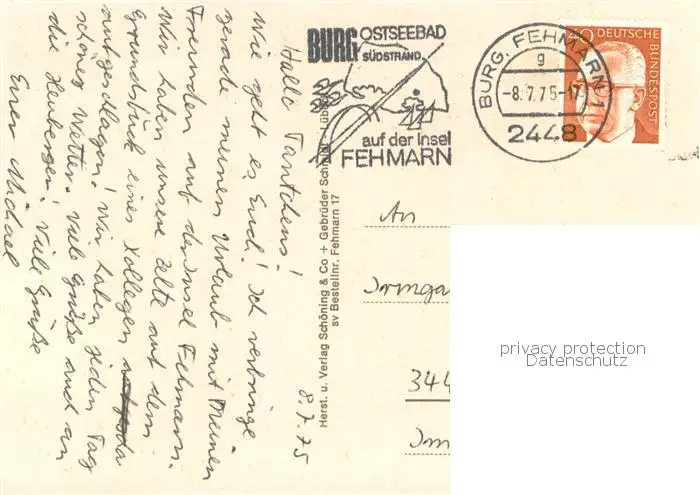 BURG OSTSEEBAD
SÜDSTRAND
auf der Insel
FEHMARN
BURG, FEHMARN 1
g
-8.7.75-17
2448
40 DEUTSCHE
BUNDESPOST
8.7.75
Hallo Tantchens!
Wie geht es Euch! Ich verbringe
gerade meinen Urlaub mit meinen
Freunden auf der Insel Fehmarn.
Wir haben unsere Zelte auf dem
Grundstück eines Kollegen
aufgeschlagen! Wir haben jeden Tag
schönes Wetter. Viele Grüße auch an
die Heuberger! Viele Grüße
Euer Michael
Herst. u. Verlag Schöning & Co + Gebrüder Schmidt - Lübeck
sv Bestellnr. Fehmarn 17
An
Irmga
344
Im
privacy protection
Datenschutz